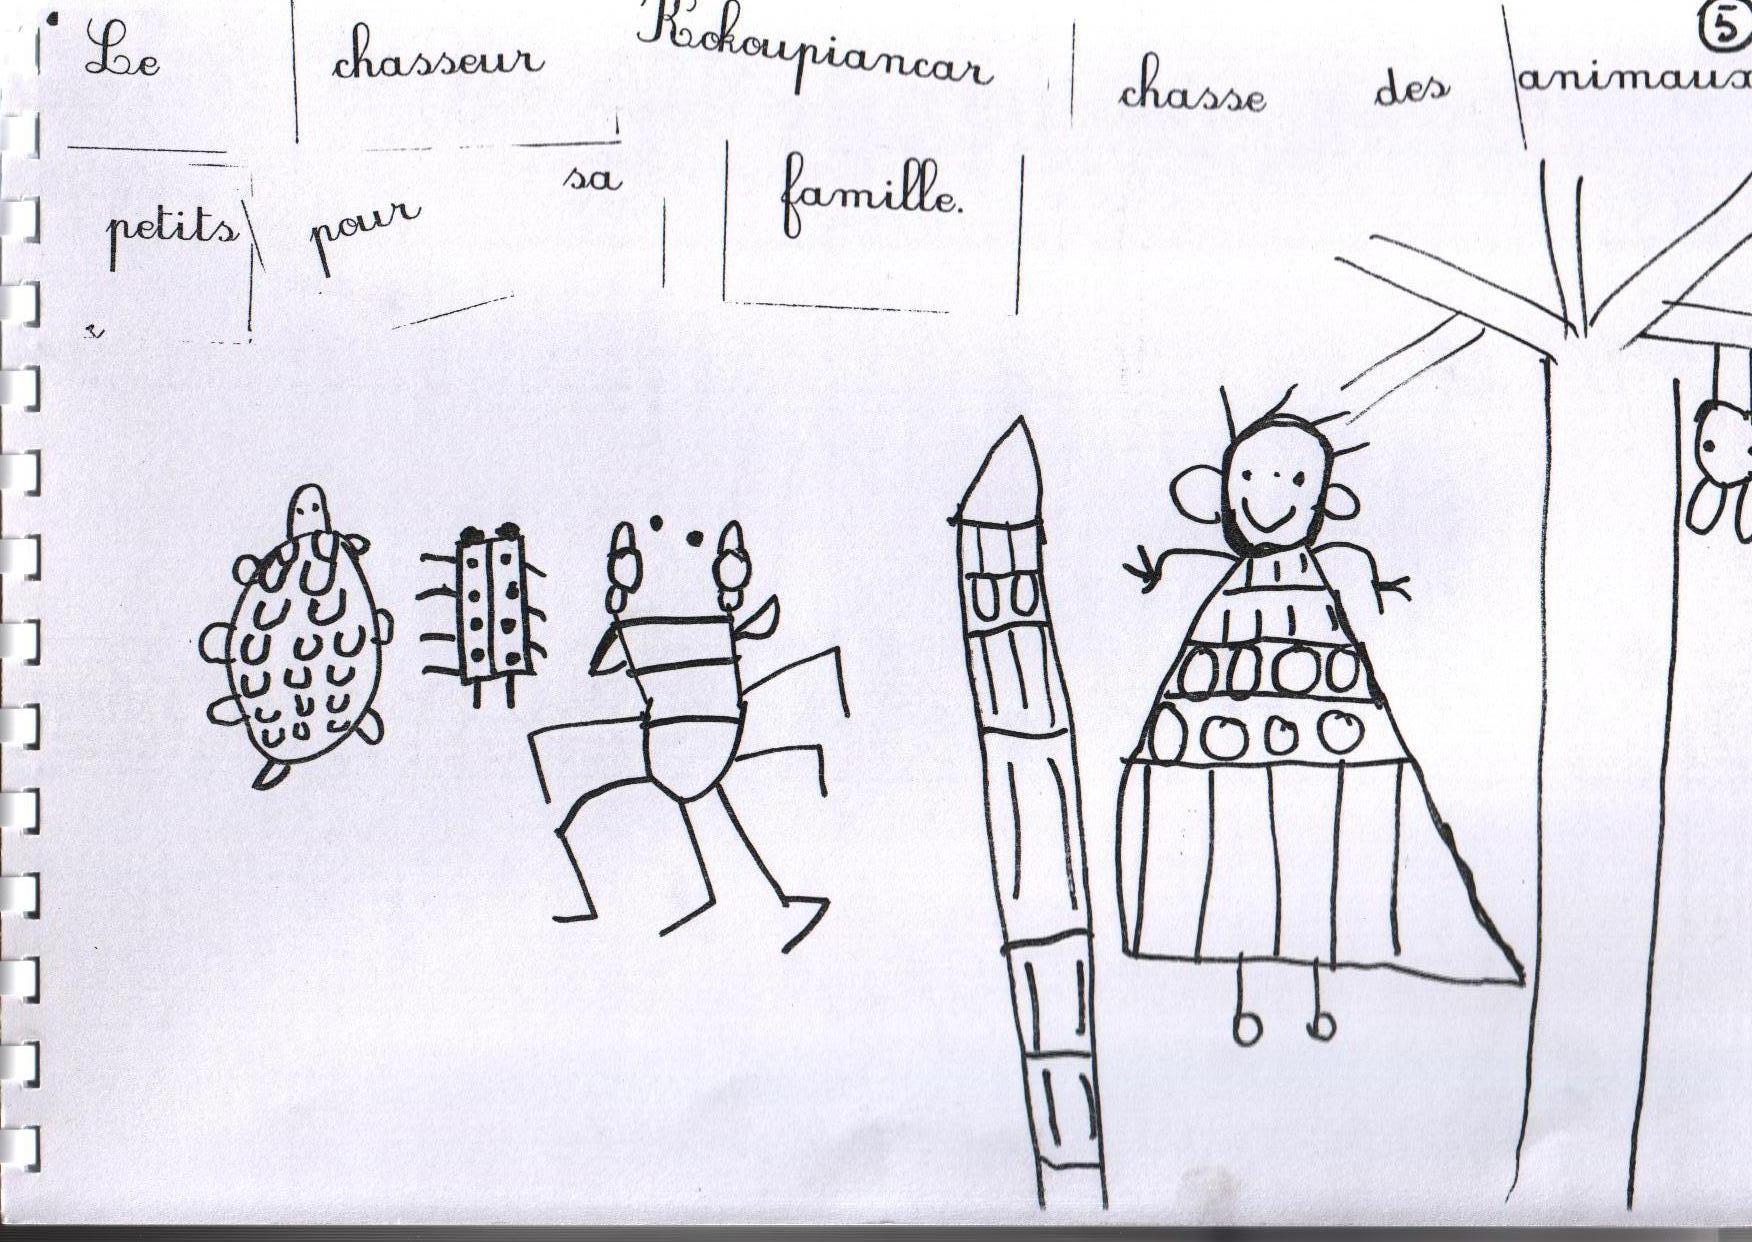 Le chasseur Kokoupiancar chasse des animaux
petits pour sa famille.
5